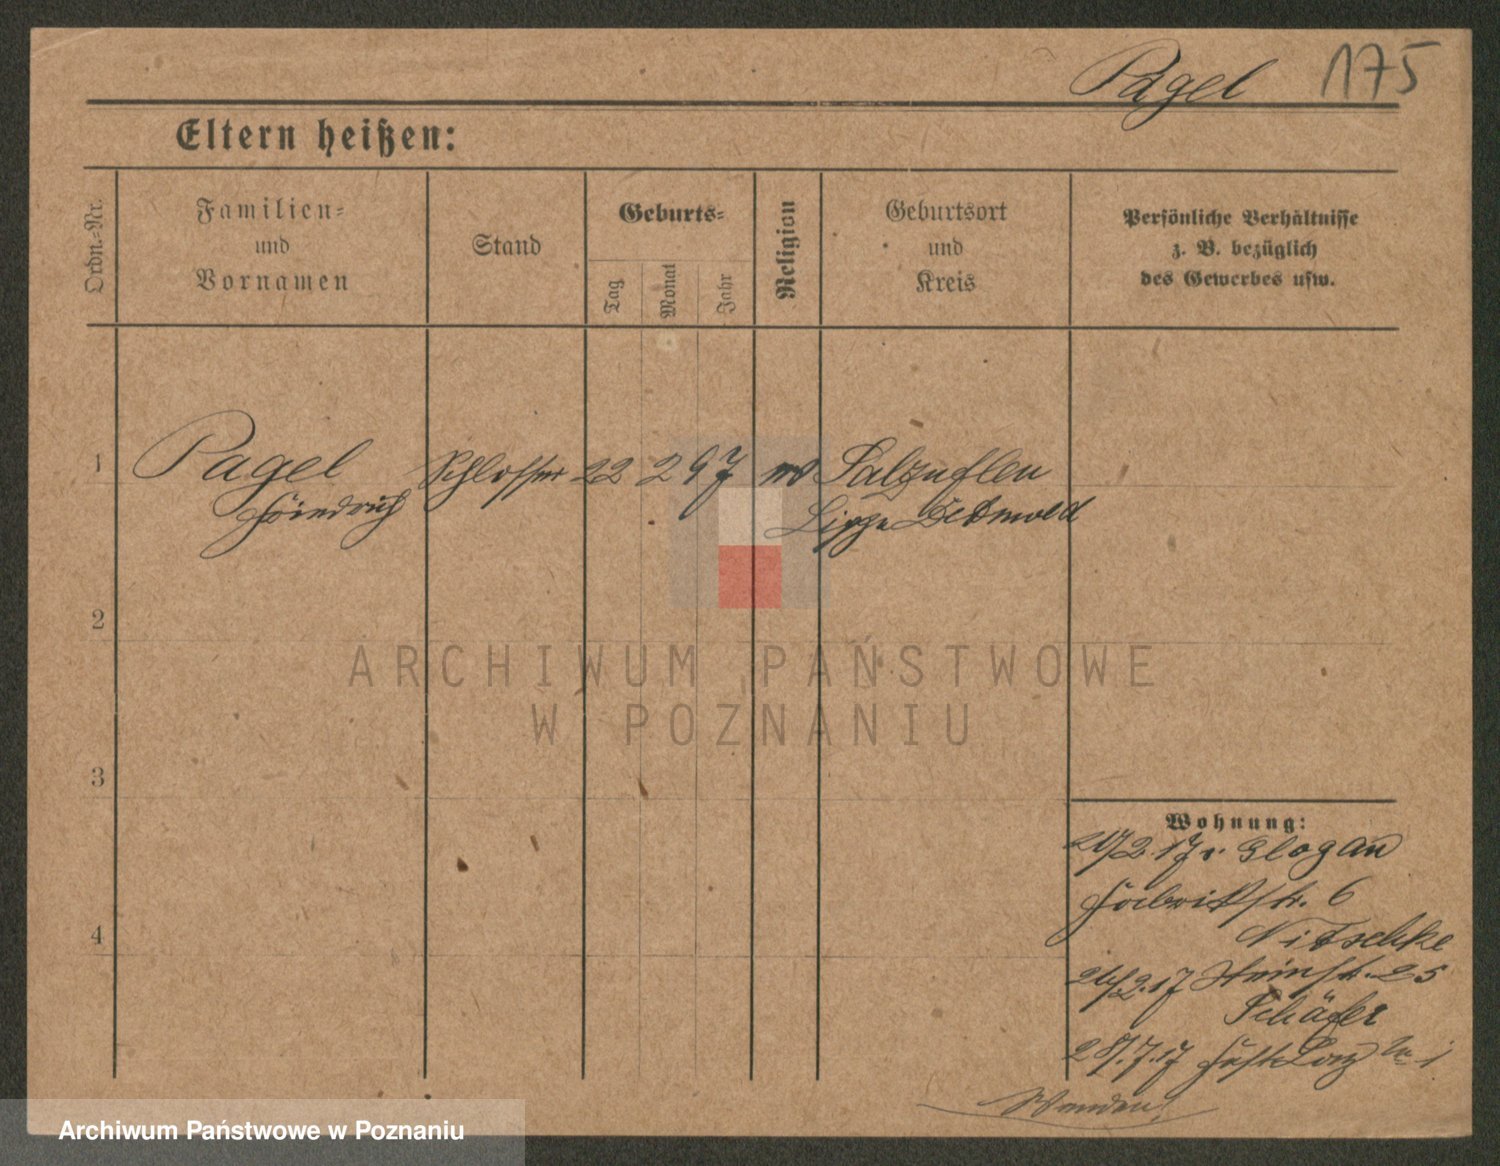 Pagel 175
Eltern heißen:
Ordn.-Nr.
Familien-
und
Vornamen
Stand
Geburts-
Tag
Monat
Jahr
Religion
Geburtsort
und
Kreis
Persönliche Verhältnisse
z. B. bezüglich
des Gewerbes usw.
1 Pagel Schlosser 22 2 97 Salzuflen
Friedrich Lippe Detmold
2
3
4
Wohnung:
2.17 v. Glogau
Fabrikstr. 6
Nitschke
2.17 Steinstr. 25
Schäfer
28.7.17
Wenden!
ARCHIWUM PAŃSTWOWE
W POZNANIU
Archiwum Państwowe w Poznaniu